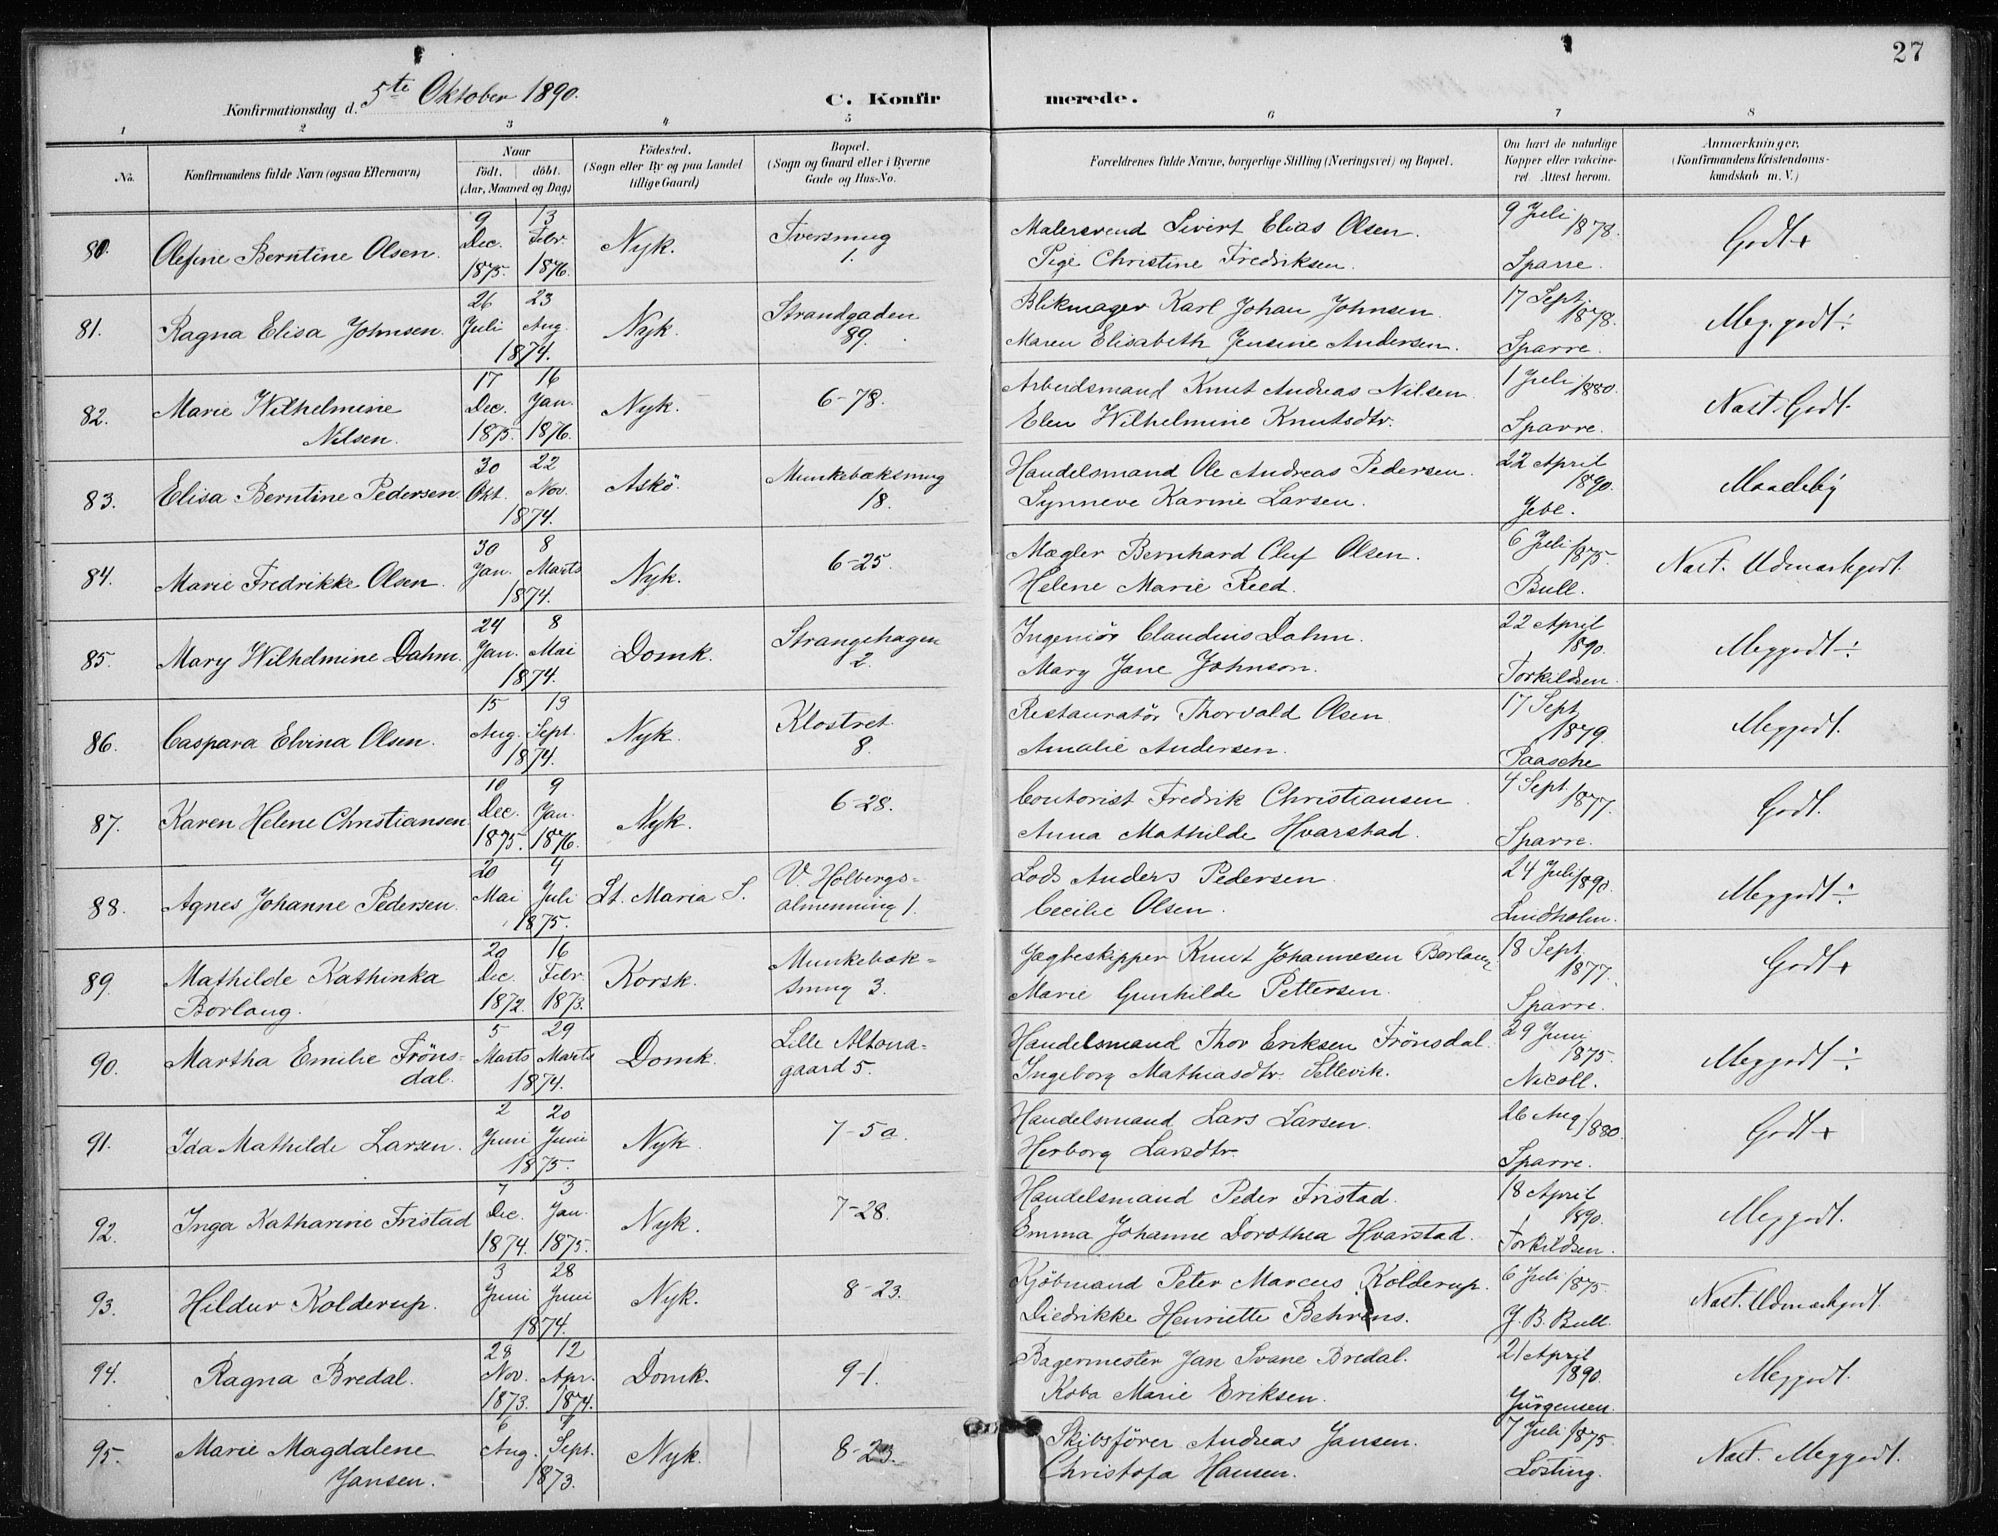 27
Konfirmationsdag d. 5te Oktober 1890.
C. Konfirmerede.
1 2 3 4 5 6 7 8
No.
Konfirmandens fulde Navn (ogsaa Efternavn)
Naar
födt. döbt.
(Aar, Maaned og Dag)
Födested.
(Sogn eller By og paa Landet
tillige Gaard)
Bopæl.
(Sogn og Gaard eller i Byerne
Gade og Hus-No.
Forældrenes fulde Navne, borgerlige Stilling (Næringsvei) og Bopæl.
Om havt de naturlige
Kopper eller vakcine-
ret. Attest herom.
Anmærkninger,
(Konfirmandens Kristendoms-
kundskab m. V.)
80. Olefine Berntine Olsen. 9 Dec. 1875. 13 Febr. 1876. Nyk. Tversmug 1.
Malersvend Sivert Elias Olsen. Pige Christine Fredriksen. 9 Juli 1878. Sparre. Godt +
81. Ragna Elisa Johnsen. 26 Juli 23 Aug. 1874. Nyk. Strandgaden 89.
Blikmager Karl Johan Johnsen. Maren Elisabeth Jensine Andersen. 17 Sept. 1878. Sparre. Meg. godt ÷
82. Marie Wilhelmine Nilsen. 17 Dec. 1875. 16 Jan. 1876. Nyk. 6-78.
Arbeidsmand Knut Andreas Nilsen. Elen Wilhelmine Knutsdtr. 1 Juli 1880. Sparre. Nast. Godt.
83. Elisa Berntine Pedersen. 30 Okt. 22 Nov. 1874. Askö. Munkebæksmug 18.
Handelsmand Ole Andreas Pedersen. Synneve Karine Larsen. 22 April 1890. Jebe. Maadelig
84. Marie Fredrikke Olsen. 30 Jan. 8 Marts 1874. Nyk. 6-25.
Mægler Bernhard Oluf Olsen. Helene Marie Reed. 6 Juli 1875. Bull. Nast. Udmærkgodt.
85. Mary Wilhelmine Dahm. 24 Jan. 8 Mai 1874. Domk. Strangehagen 2.
Ingeniör Claudius Dahm. Mary Jane Johnson. 22 April 1890. Torkildsen. Meggodt ÷
86. Caspara Elvina Olsen. 15 Aug. 13 Sept. 1874. Nyk. Klostret 8.
Restauratör Thorvald Olsen. Amalie Andersen. 17 Sept 1879. Paasche Meggodt.
87. Karen Helene Christiansen. 10 Dec. 1875. 9 Jan. 1876. Nyk. 6-28.
Contorist Fredrik Christiansen. Anna Mathilde Hvarstad. 4 Sept. 1877. Sparre. Godt.
88. Agnes Johanne Pedersen. 20 Mai 4 Juli 1875. St. Maria S. V. Holbergs-almenning 1.
Lods Anders Pedersen. Cecilie Olsen. 24 Juli 1890. Lindholm. Meggodt ÷
89. Mathilde Kathinka Borlaug. 20 Dec. 1872. 16 Febr. 1873. Korsk. Munkebæk-smug 3.
Jægteskipper Knut Johannesen Borlaug Marie Gunhilde Pettersen. 18 Sept 1877. Sparre. Godt +
90. Martha Emilie Fröns-dal. 5 Marts 29 Marts 1874. Domk. Lille Altona-gaard 5.
Handelsmand Thor Eriksen Frönsdal. Ingeborg Mathiasdtr. Sellevik. 29 Juni 1875. Nicoll. Meggodt ÷
91. Ida Mathilde Larsen. 2 Juni 20 Juni 1875. Nyk. 7-5a.
Handelsmand Lars Larsen. Herborg Larsdtr. 26 Aug 1880. Sparre. Godt +
92. Inga Katharine Fristad 7 Dec. 1874. 3 Jan. 1875. Nyk. 7-28.
Handelsmand Peder Fristad. Emma Johanne Dorothea Hvarstad. 18 April 1890. Torkildsen. Meggodt.
93. Hildur Kolderup. 3 Juni 28 Juni 1874. Nyk. 8-23.
Kjöbmand Peter Marcus Kolderup. Diedrikke Henriette Behrens. 6 Juli 1875. J. B. Bull. Nast. Udmærkgodt.
94. Ragna Bredal. 28 Nov. 1873. 12 Apr. 1874. Domk. 9-1.
Bagermester Jan Svane Bredal. Koba Marie Eriksen. 21 April 1890. Jürgensen. Meggodt.
95. Marie Magdalene Jansen. 6 Aug. 7 Sept. 1873. Nyk. 8-23.
Skibsförer Andreas Jansen. Christofa Hansen. 7 Juli 1875. Losting. Nast. Meggodt.